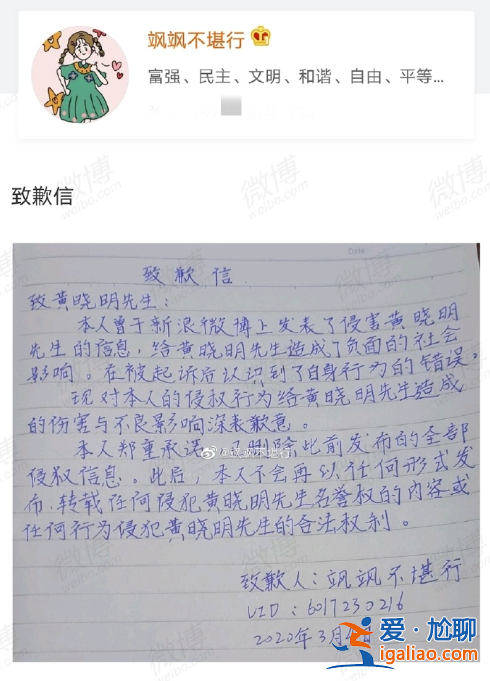 飒飒不堪行
富强、民主、文明、和谐、自由、平等...
致歉信
Date
致歉信
致黄晓明先生：
本人曾于新浪微博上发表了侵害黄晓明
先生的信息，给黄晓明先生造成了负面的社会
影响。在被起诉后认识到了自身行为的错误。
现对本人的侵权行为给黄晓明先生造成
的伤害与不良影响深表歉意。
本人郑重承诺，已删除此前发布的全部
侵权信息。此后，本人不会再以任何形式发
布、转载任何侵犯黄晓明先生名誉权的内容或
任何行为侵犯黄晓明先生的合法权利。
@飒飒不堪行
致歉人：飒飒不堪行
UID：6017230216
2020年3月4日
爱·尴聊
igaliao.com
微博
weibo.com